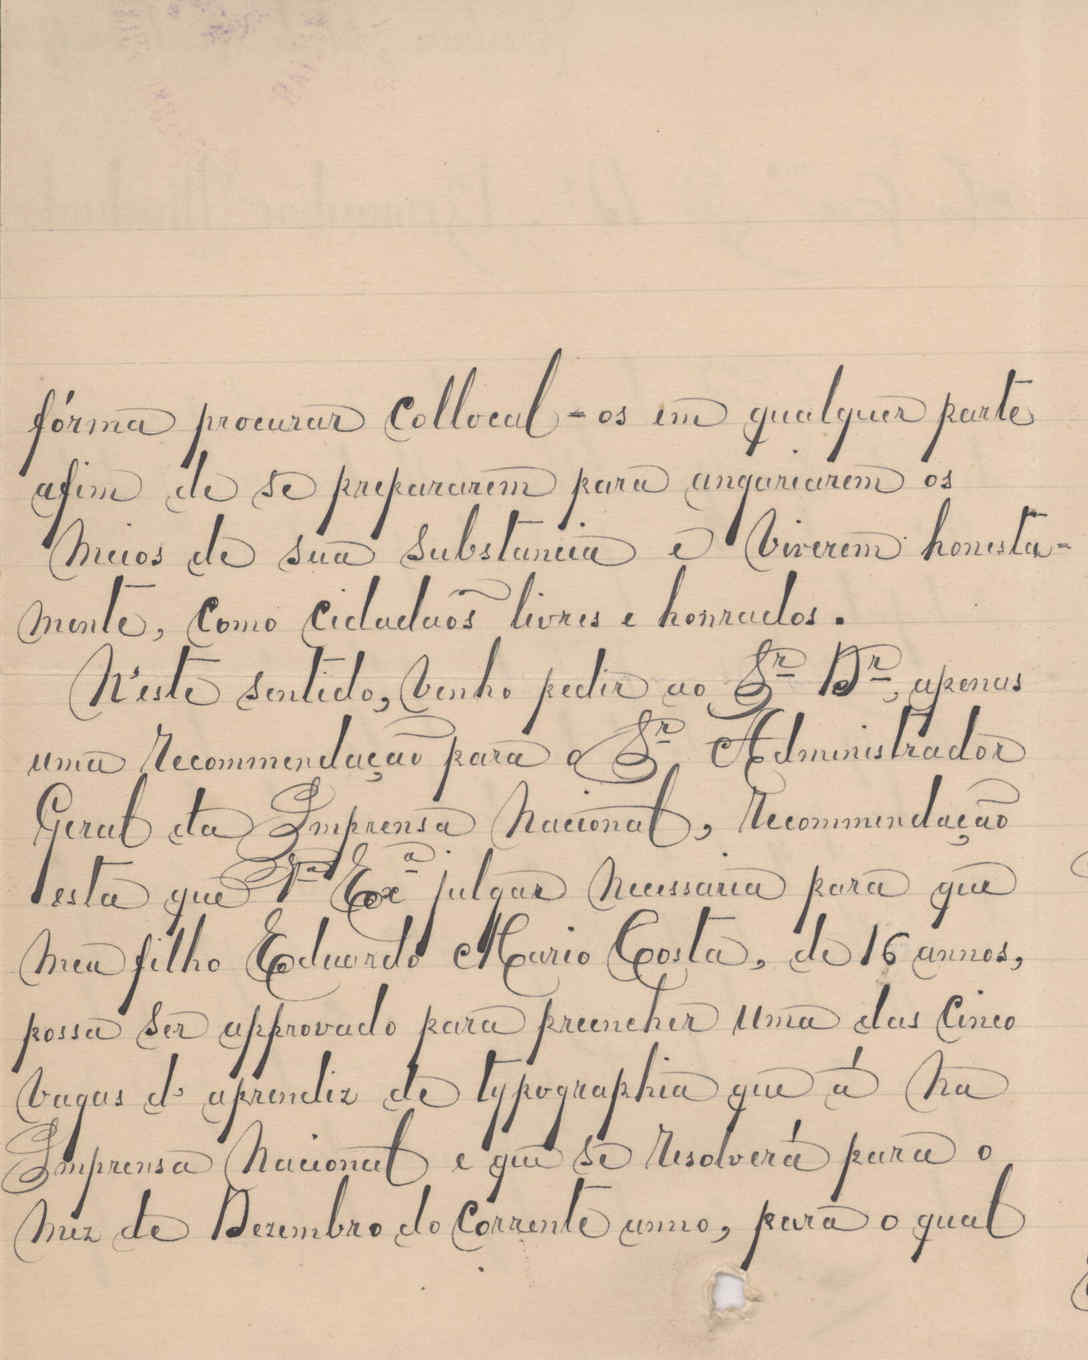 fórma procurar Collocal-os em qualquer parte
afim de se prepararem para angariarem os
Meios de sua Substancia e Viverem honesta-
mente, Como Cidadaõs livres e honrados.
N'este sentido, Venho pedir ao Sr Dr, apenas
uma Recommendação para o Sr Administrador
Geral da Imprensa Nacional, Recommendação
esta que Vª Exª julgar Necessaria para que
Meu filho Eduardo Mario Costa, de 16 annos,
possa Ser approvado para preencher uma das Cinco
Vagas d'aprendiz de typographia que á Na
Imprensa Nacional e que se Resolverá para o
Mez de Dezembro do Corrente anno, para o qual